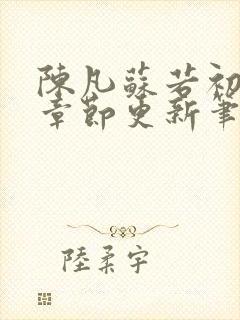 陳凡蘇若初
章節更新筆
陸柔宇